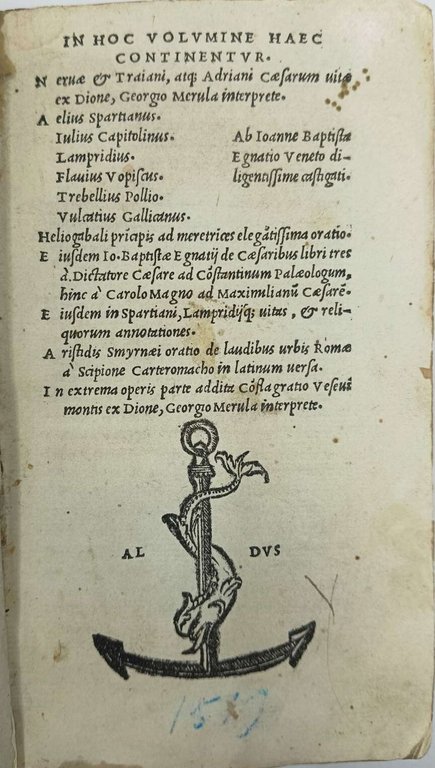 IN HOC VOLVMINE HAEC
CONTINENTVR.
N eruæ & Traiani, atq; Adriani Cæsarum uitæ
ex Dione, Georgio Merula interprete.
A elius Spartianus.
Iulius Capitolinus. Ab Ioanne Baptista
Lampridius. Egnatio Veneto di-
Flauius Vopiscus. ligentissime castigati.
Trebellius Pollio.
Vulcatius Gallicanus.
Heliogabali prĩcipis ad meretrices elegãtissima oratio.
E iusdem Io. Baptistæ Egnatij de Cæsaribus libri tres
à Dictatore Cæsare ad Cõstantinum Palæologum,
hinc à Carolo Magno ad Maximilianũ Cæsarẽ.
E iusdem in Spartiani, Lampridijq; uitas, & reli-
quorum annotationes.
A ristidis Smyrnæi oratio de laudibus urbis Romæ
à Scipione Carteromacho in latinum uersa.
I n extrema operis parte addita Cõflagratio Veseui
montis ex Dione, Georgio Merula interprete.
AL DVS